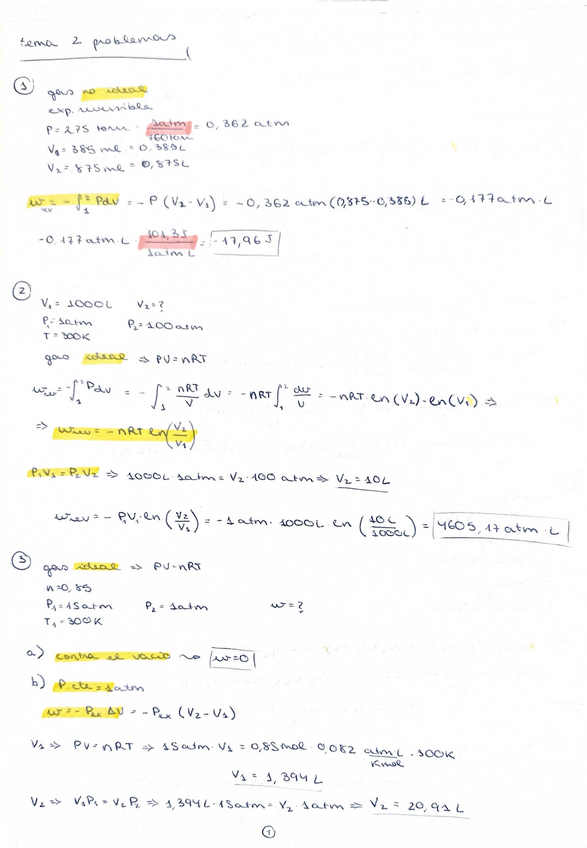 tema 2 problemas
① gas no ideal
exp. reversible
P = 275 torr · 1atm/760torr = 0,362 atm
V₁ = 385 ml = 0,385L
V₂ = 875 ml = 0,875L
w rev = -∫₁² PdV = -P (V₂-V₁) = -0,362 atm (0,875-0,385) L = -0,177 atm·L
-0,177 atm L · 101,3J/1atm L = -17,96 J
②
V₁ = 1000L V₂ = ?
P₁ = 1atm P₂ = 100 atm
T = 300K
gas ideal ⇒ PV = nRT
w rev = -∫₁² Pdv = -∫₁² nRT/V dV = -nRT ∫₁² dv/v = -nRT · ln (V₂) - ln (V₁) ⇒
⇒ w rev = -nRT ln(V₂/V₁)
P₁V₁ = P₂V₂ ⇒ 1000L · 1atm = V₂ · 100 atm ⇒ V₂ = 10L
w rev = -P₁V₁ · ln (V₂/V₁) = -1 atm · 1000L · ln (10L/1000L) = 4605,17 atm · L
③ gas ideal ⇒ PV = nRT
n = 0,85
P₁ = 15 atm P₂ = 1atm w = ?
T₁ = 300K
a) contra el vacio → w=0
b) P. cte = 1 atm
w = -Pex ΔV = -Pex (V₂-V₁)
V₁ ⇒ PV = nRT ⇒ 15atm · V₁ = 0,85mol · 0,082 atm L/K mol · 300K
V₁ = 1,394 L
V₂ ⇒ V₁P₁ = V₂P₂ ⇒ 1,394L · 15atm = V₂ · 1atm ⇒ V₂ = 20,91 L
①